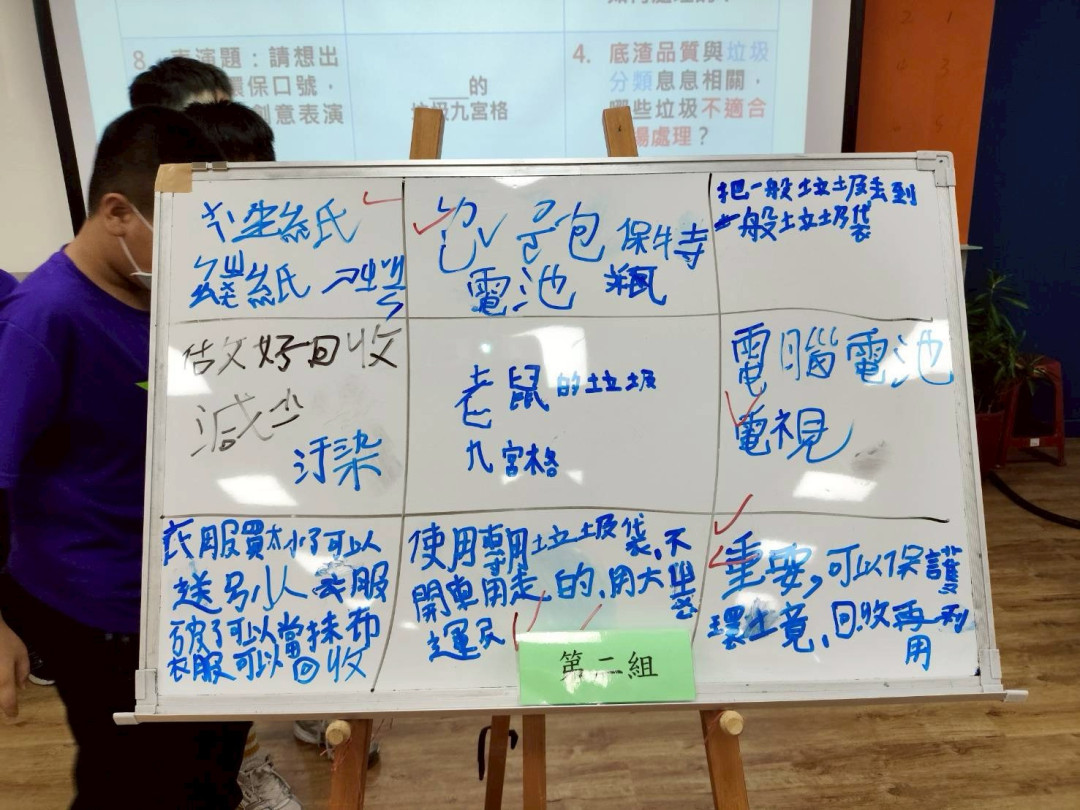 8. 表演題：請想出
環保口號，
創意表演
___的
垃圾九宮格
4. 底渣品質與垃圾
分類息息相關，
哪些垃圾不適合
處理？
紙
紙
包
保特
電池
瓶
把一般垃圾丟到
一般垃圾袋
做好回收
減少
汙染
老鼠的垃圾
九宮格
電腦電池
電視
衣服買太小了可以
送別人 衣服
破了可以當抹布
衣服可以當回收
使用專用垃圾袋、不
開車用走的、用大眾
運
重要,可以保護
環境、回收再利
用
第二組